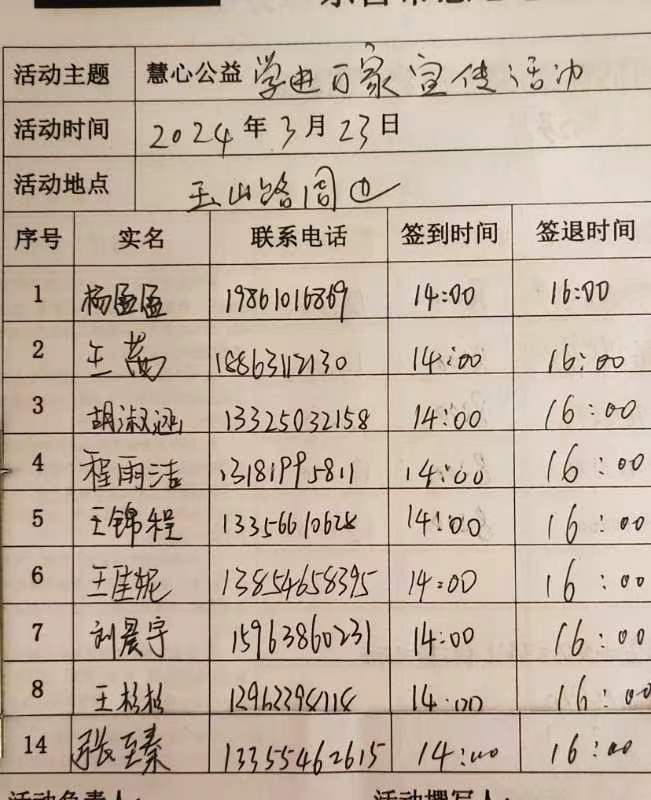 活动主题 慧心公益 学进万家宣传活动
活动时间 2024年3月23日
活动地点 玉山路周边
序号 实名 联系电话 签到时间 签退时间
1 杨孟孟 19861016869 14:00 16:00
2 王茜 18863112130 14:00 16:00
3 胡淑涵 13325032158 14:00 16:00
4 程雨洁 13181995811 14:00 16:00
5 王锦程 13356610628 14:00 16:00
6 王佳妮 13854658395 14:00 16:00
7 刘晨宇 15963860231 14:00 16:00
8 王杉杉 14:00 16:00
14 张至秦 13355462615 14:00 16:00
活动负责人： 活动撰写人：